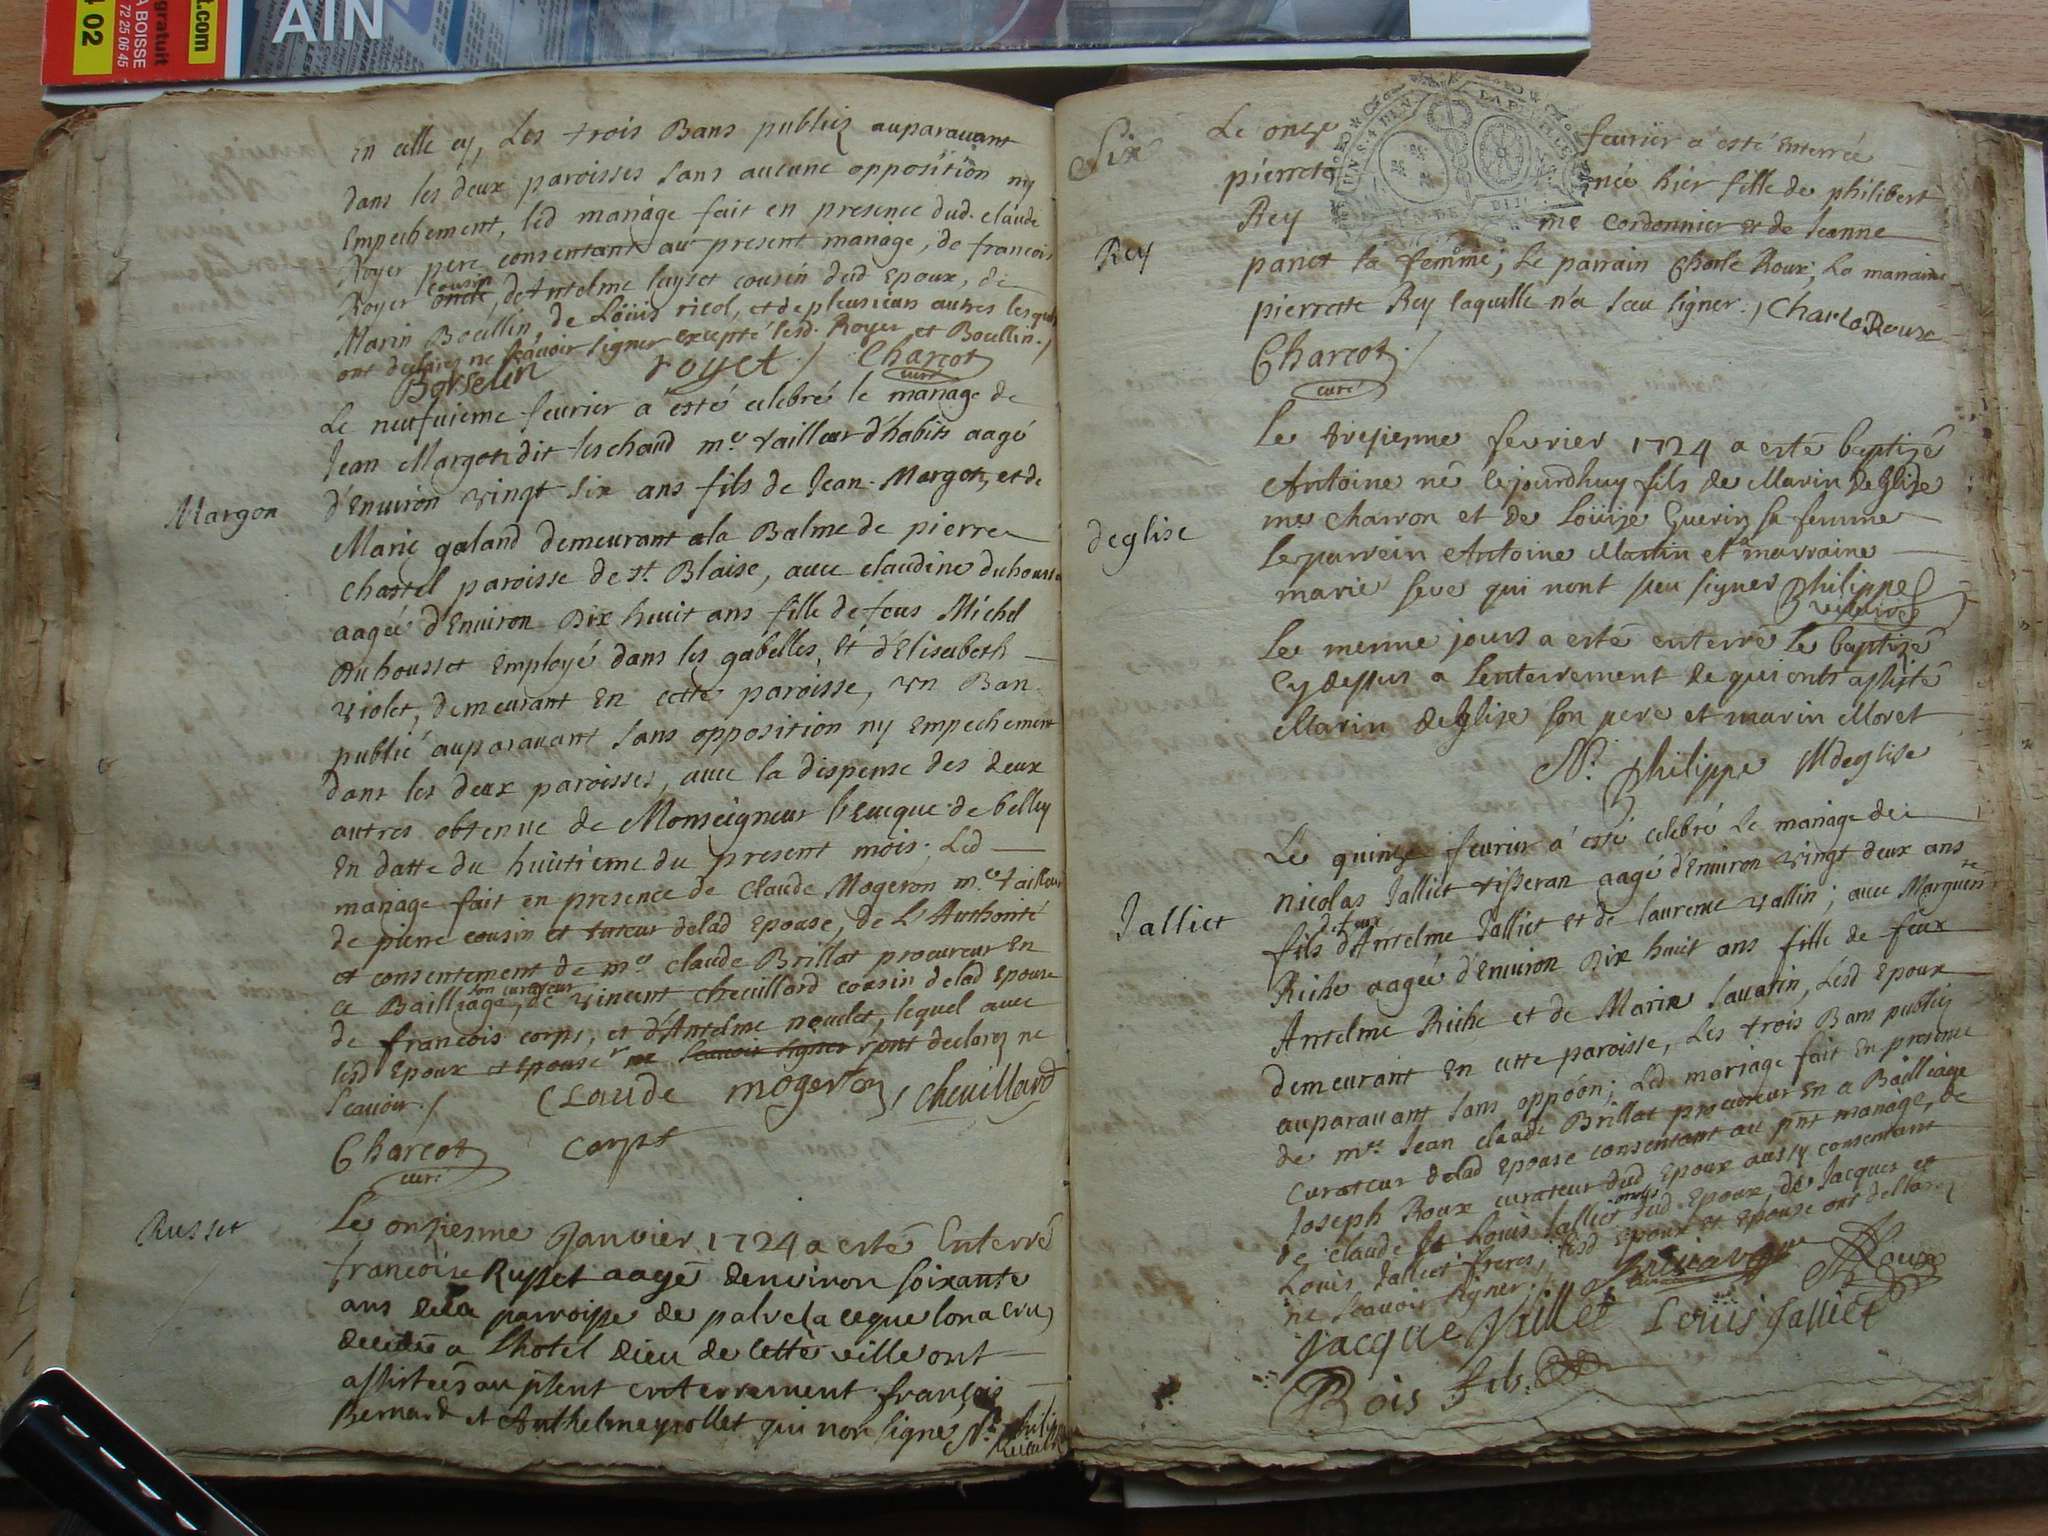 AIN
gratuit
.com
02
A BOISSE
72 25 06 45
En celle cy, Les trois Bans publiez auparavant
dans les deux paroisses sans aucune opposition ny
Empechement, led mariage fait en presence dud. claude
Royer pere consentant au present mariage, de francois
Royer oncle, cousin d'Antelme layset cousin dud Epoux, de
Marin Boullin, de Loüis ricol, et de plusieurs autres lesquels
ont declarez ne scavoir signer excepté lesd. Royer et Boullin./
Borselin royet / Charcot
curé
Le neufuieme feurier a esté celebré le mariage de
Jean Margon dit leschaud me tailleur d'habits aagé
Margon
d'Enuiron vingt six ans fils de Jean Margon, et de
Marie galand demeurant a la Balme de pierre
chastel paroisse de st. Blaise, auec claudine duhousset
aagée d'Enuiron Dix huit ans fille de feus Michel
duhousset Employé dans les gabelles, et d'Elisabeth
violet, demeurant En cette paroisse, vn Ban
publié auparauant sans opposition ny Empechement
dans les deux paroisses, auec la dispense des deux
autres obtenue de Monseigneur l'Eueque de belley
En datte du huitieme du present mois. Led
mariage fait en presence de Claude Mogeron me tailleur
de pierre cousin et tuteur delad Epouse, de L'Authorité
et consentement de me claude Brillat procureur En
ce Bailliage, son curateur de vincent cheuillard cousin delad Epouse
de francois corps, et d'Antelme nouelet, lequel auec
lesd Epoux et Epouse ne scauoir signer ont declarez ne
scauoir./ CLaude mogeron, cheuillard
Charcot corps
curé
Russet
Le onziesme Janvier 1724 a esté Enterré
francoise Russet aagé denviron soixante
ans de la parroisse de palvela ceque lon a cru
decedée a lhotel dieu de cette ville ont
assistees au pñent enterrement françois
Bernard et Anthelme yrollet qui non signé N. phili
Six
Le onze feurier a esté Enterrée
pierrete née hier fille de philibert
Rey me cordonnier et de Jeanne
Rey
panet sa femme; Le parrain Charle Roux; La marraine
pierrette Rey laquelle n'a sceu signer./ Charlo Roux
Charcot /
curé
Le treziesme fevrier 1724 a esté baptizé
Antoine né cejourdhuy fils de Marin deglize
me charron et de Loüize Guerin sa femme
deglise
Le parrein Antoine Martin et la marraine
marie seve qui nont sceu signer Philippe
vicaire
Le mesme jours a esté enterré le baptizé
Cy dessus a lenterrement de qui onts assisté
Marin deglise son pere et marin Moret
N. philippe Mdeglise
Le quinze feurier a esté celebré Le mariage de
nicolas Jalliet tisseran aagé d'Enuiron vingt deux ans
Jalliet
fils de feux d'Antelme Jalliet et de laurence vallin; auec Marguerite
Riche aagée d'Enuiron Dix huit ans fille de feux
Antelme Riche et de Marin Sauarin, Lesd Epoux
demeurant En cette paroisse, Les trois Bans publiez
auparauant sans oppöon; Led mariage fait En presence
de me Jean claude Brillat procureur En ce Bailliage
curateur delad Epouse consentant au pñt mariage, de
Joseph Roux curateur dud Epoux aussy consentant
de claude et Louis Jalliet oncles dud Epoux, de Jacques et
Louis Jalliet freres, lesd Epoux et Epouse ont declarez
ne scauoir signer./ Roux
jacque jalliet Louïs Jalliet
Bois fils.